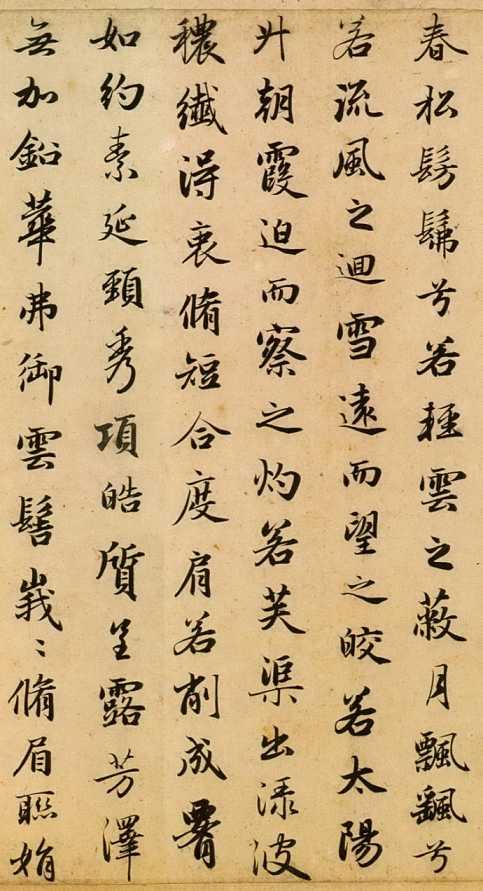 春松髣髴兮若輕雲之蔽月飄颻兮
若流風之迴雪遠而望之皎若太陽
升朝霞迫而察之灼若芙渠出淥波
穠纖得衷脩短合度肩若削成腰
如約素延頸秀項皓質呈露芳澤
無加鉛華弗御雲髻峩〻脩眉聯娟